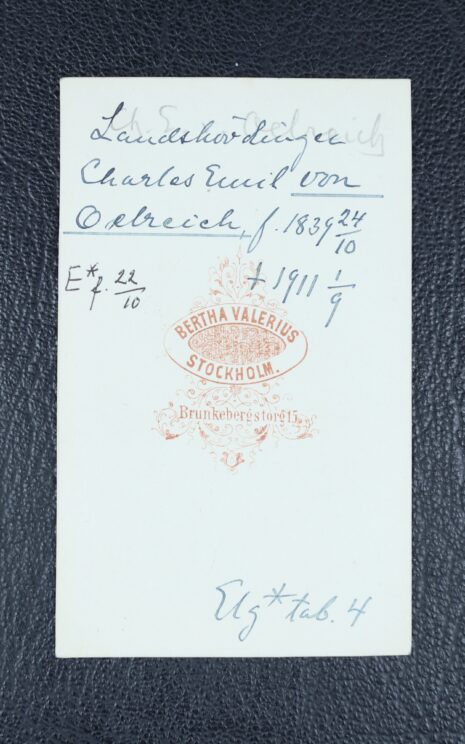 Landshövdingen
Charles Emil von
Oelreich, f. 1839 24/10
† 1911 1/9
E* f. 22/10
BERTHA VALERIUS
STOCKHOLM.
Brunkebergstorg 15.
Elg* tab. 4